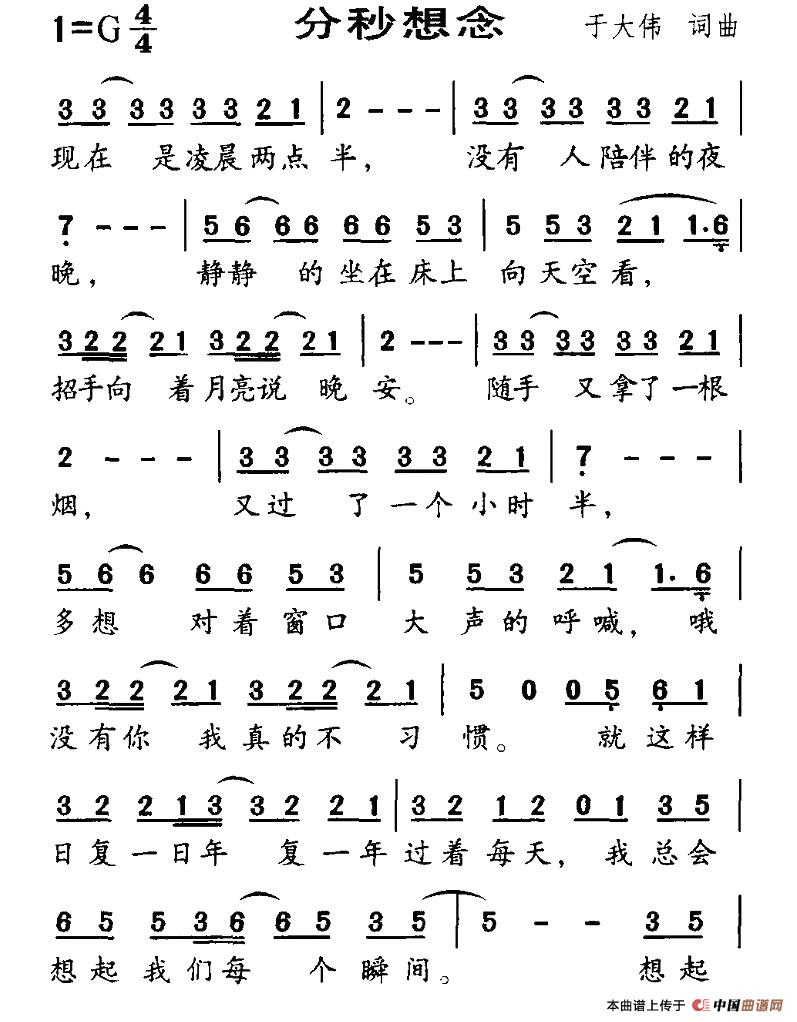 1=G 4/4 分秒想念 于大伟 词曲
3 3 3 3 3 3 2 1 | 2 - - - | 3 3 3 3 3 3 2 1 |
现在 是凌晨两点半， 没有 人陪伴的夜
7 - - - | 5 6 6 6 6 6 5 3 | 5 5 3 2 1 1·6 |
晚， 静静 的坐在床上 向天空看，
3 2 2 2 1 3 2 2 2 1 | 2 - - - | 3 3 3 3 3 3 2 1 |
招手向 着月亮说 晚 安。 随手 又拿了一根
2 - - - | 3 3 3 3 3 3 2 1 | 7 - - - |
烟， 又过 了一个小时 半，
5 6 6 6 6 5 3 | 5 5 3 2 1 1·6 |
多想 对着窗口 大 声的呼喊，哦
3 2 2 2 1 3 2 2 2 1 | 5 0 0 5 6 1 |
没有你 我真的不 习 惯。 就这样
3 2 2 1 3 3 2 2 1 | 3 2 1 2 0 1 3 5 |
日复一日年 复一年过着每天，我总会
6 5 5 3 6 6 5 3 5 | 5 - - 3 5 |
想起我们每 个瞬间。 想起
本曲谱上传于 中国曲谱网